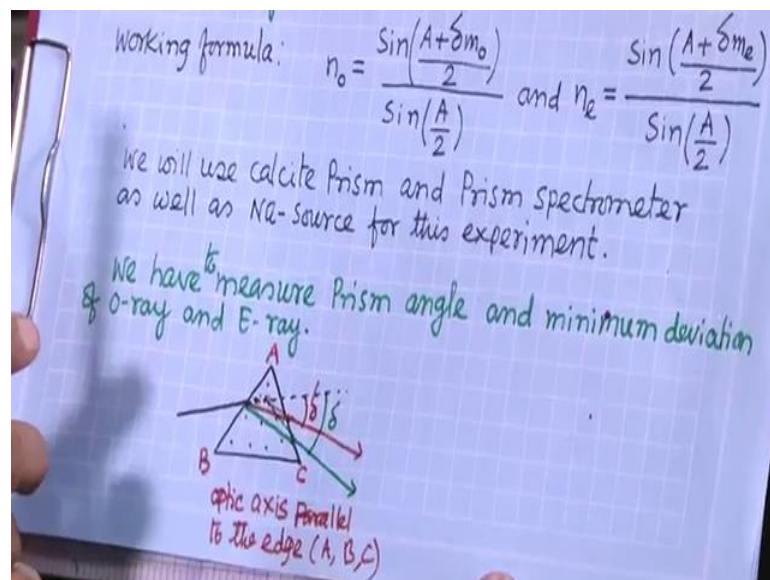 Working formula: n₀ = Sin((A+δm₀)/2) / Sin(A/2) and nₑ = Sin((A+δmₑ)/2) / Sin(A/2)
We will use calcite Prism and Prism spectrometer
as well as Na-source for this experiment.
We have to measure Prism angle and minimum deviation
of O-ray and E-ray.
A
δ δ
B C
optic axis Parallel
to the edge (A, B, C)